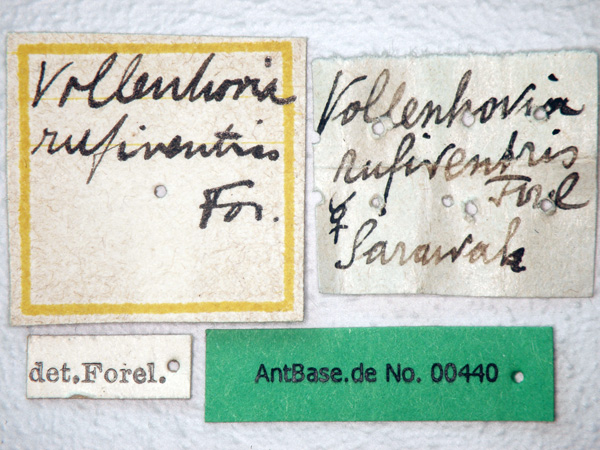 Vollenhovia
rufiventris
For.
Vollenhovia
rufiventris
Forel
☿ Sarawak
det.Forel.
AntBase.de No. 00440